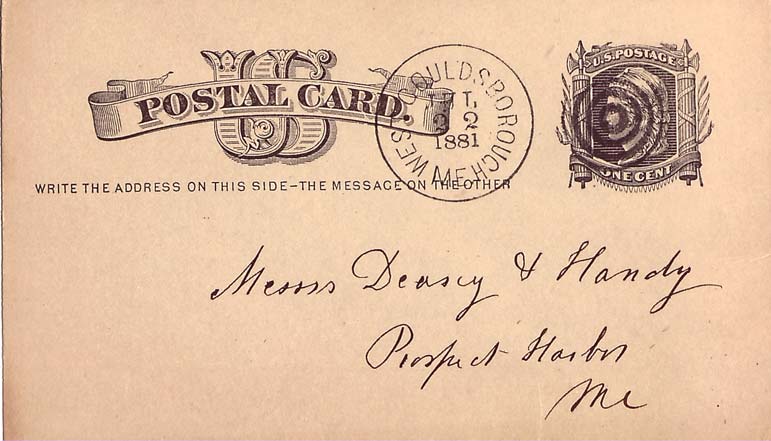 US
POSTAL CARD.
WEST GOULDSBOROUGH ME.
22
1881
U.S. POSTAGE
ONE CENT
WRITE THE ADDRESS ON THIS SIDE–THE MESSAGE ON THE OTHER
Messrs Deasy & Handy
Prospect Harbor
Me